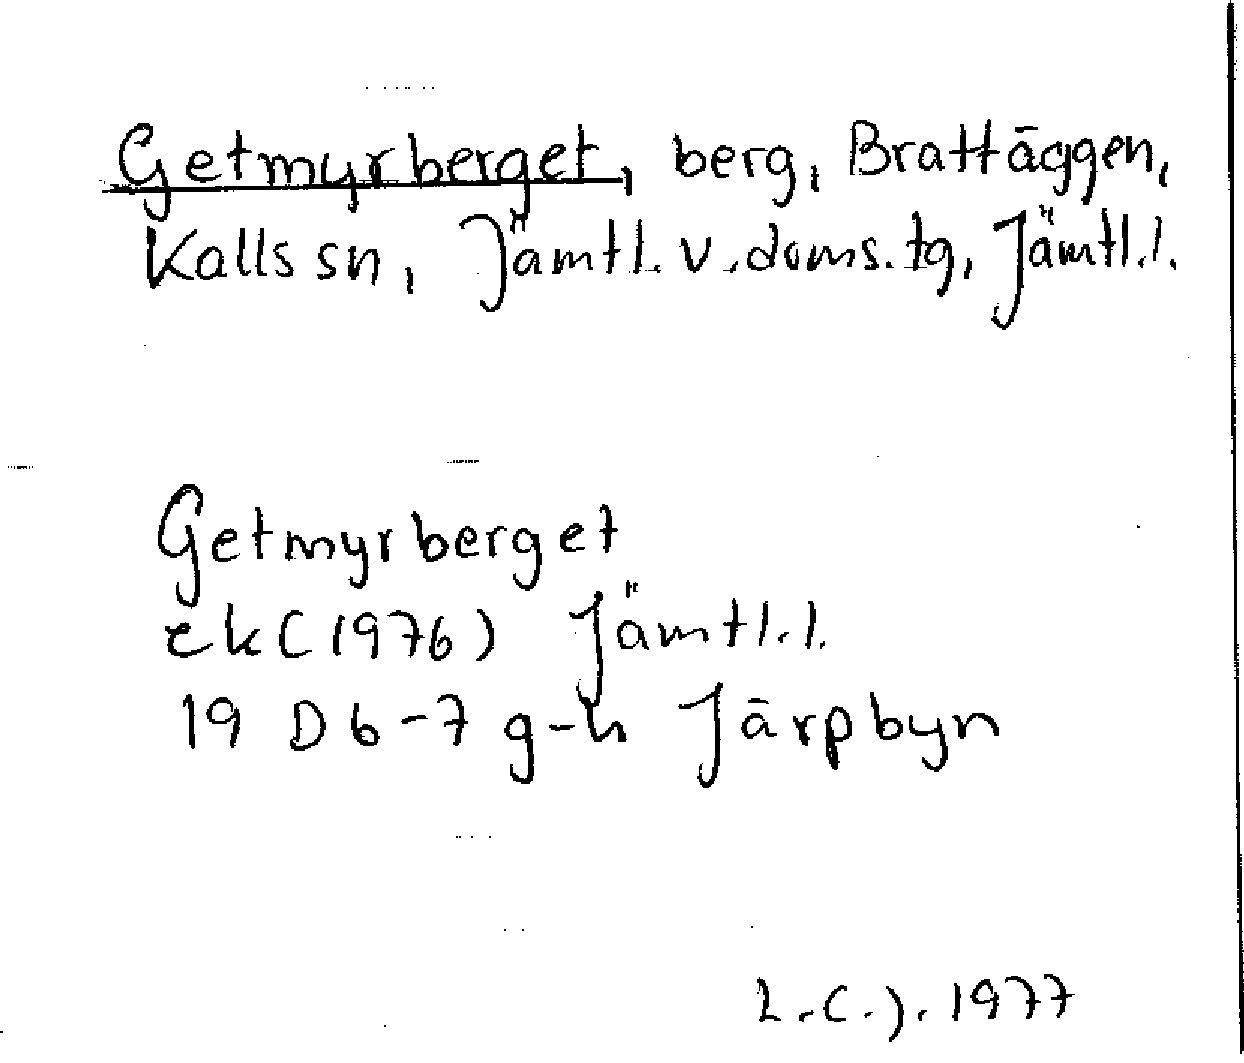 Getmyrberget, berg, Brattäggen,
Kalls sn, Jämtl. v. doms. tg, Jämtl. l.
Getmyrberget
ek (1976) Jämtl. l.
19 D 6-7 g-h Järpbyn
L.C.J. 1977